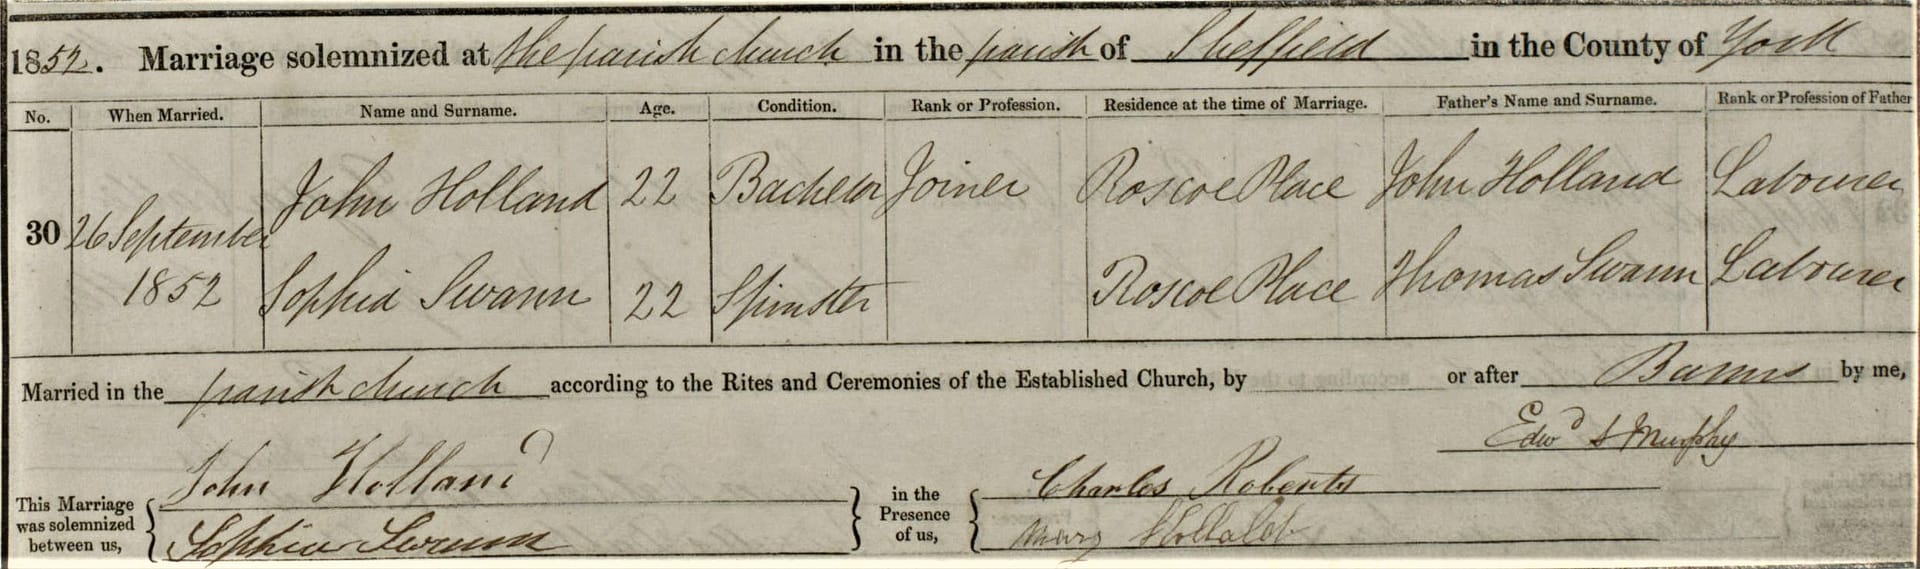 1852. Marriage solemnized at the parish church in the parish of Sheffield in the County of York
No. When Married. Name and Surname. Age. Condition. Rank or Profession. Residence at the time of Marriage. Father's Name and Surname. Rank or Profession of Father
30 26 September 1852 John Holland 22 Bachelor Joiner Roscoe Place John Holland Labourer
Sophia Swann 22 Spinster Roscoe Place Thomas Swann Labourer
Married in the parish church according to the Rites and Ceremonies of the Established Church, by or after Banns by me,
Edwd S Murphy
This Marriage was solemnized between us, John Holland Sophia Swann in the Presence of us, Charles Roberts Mary